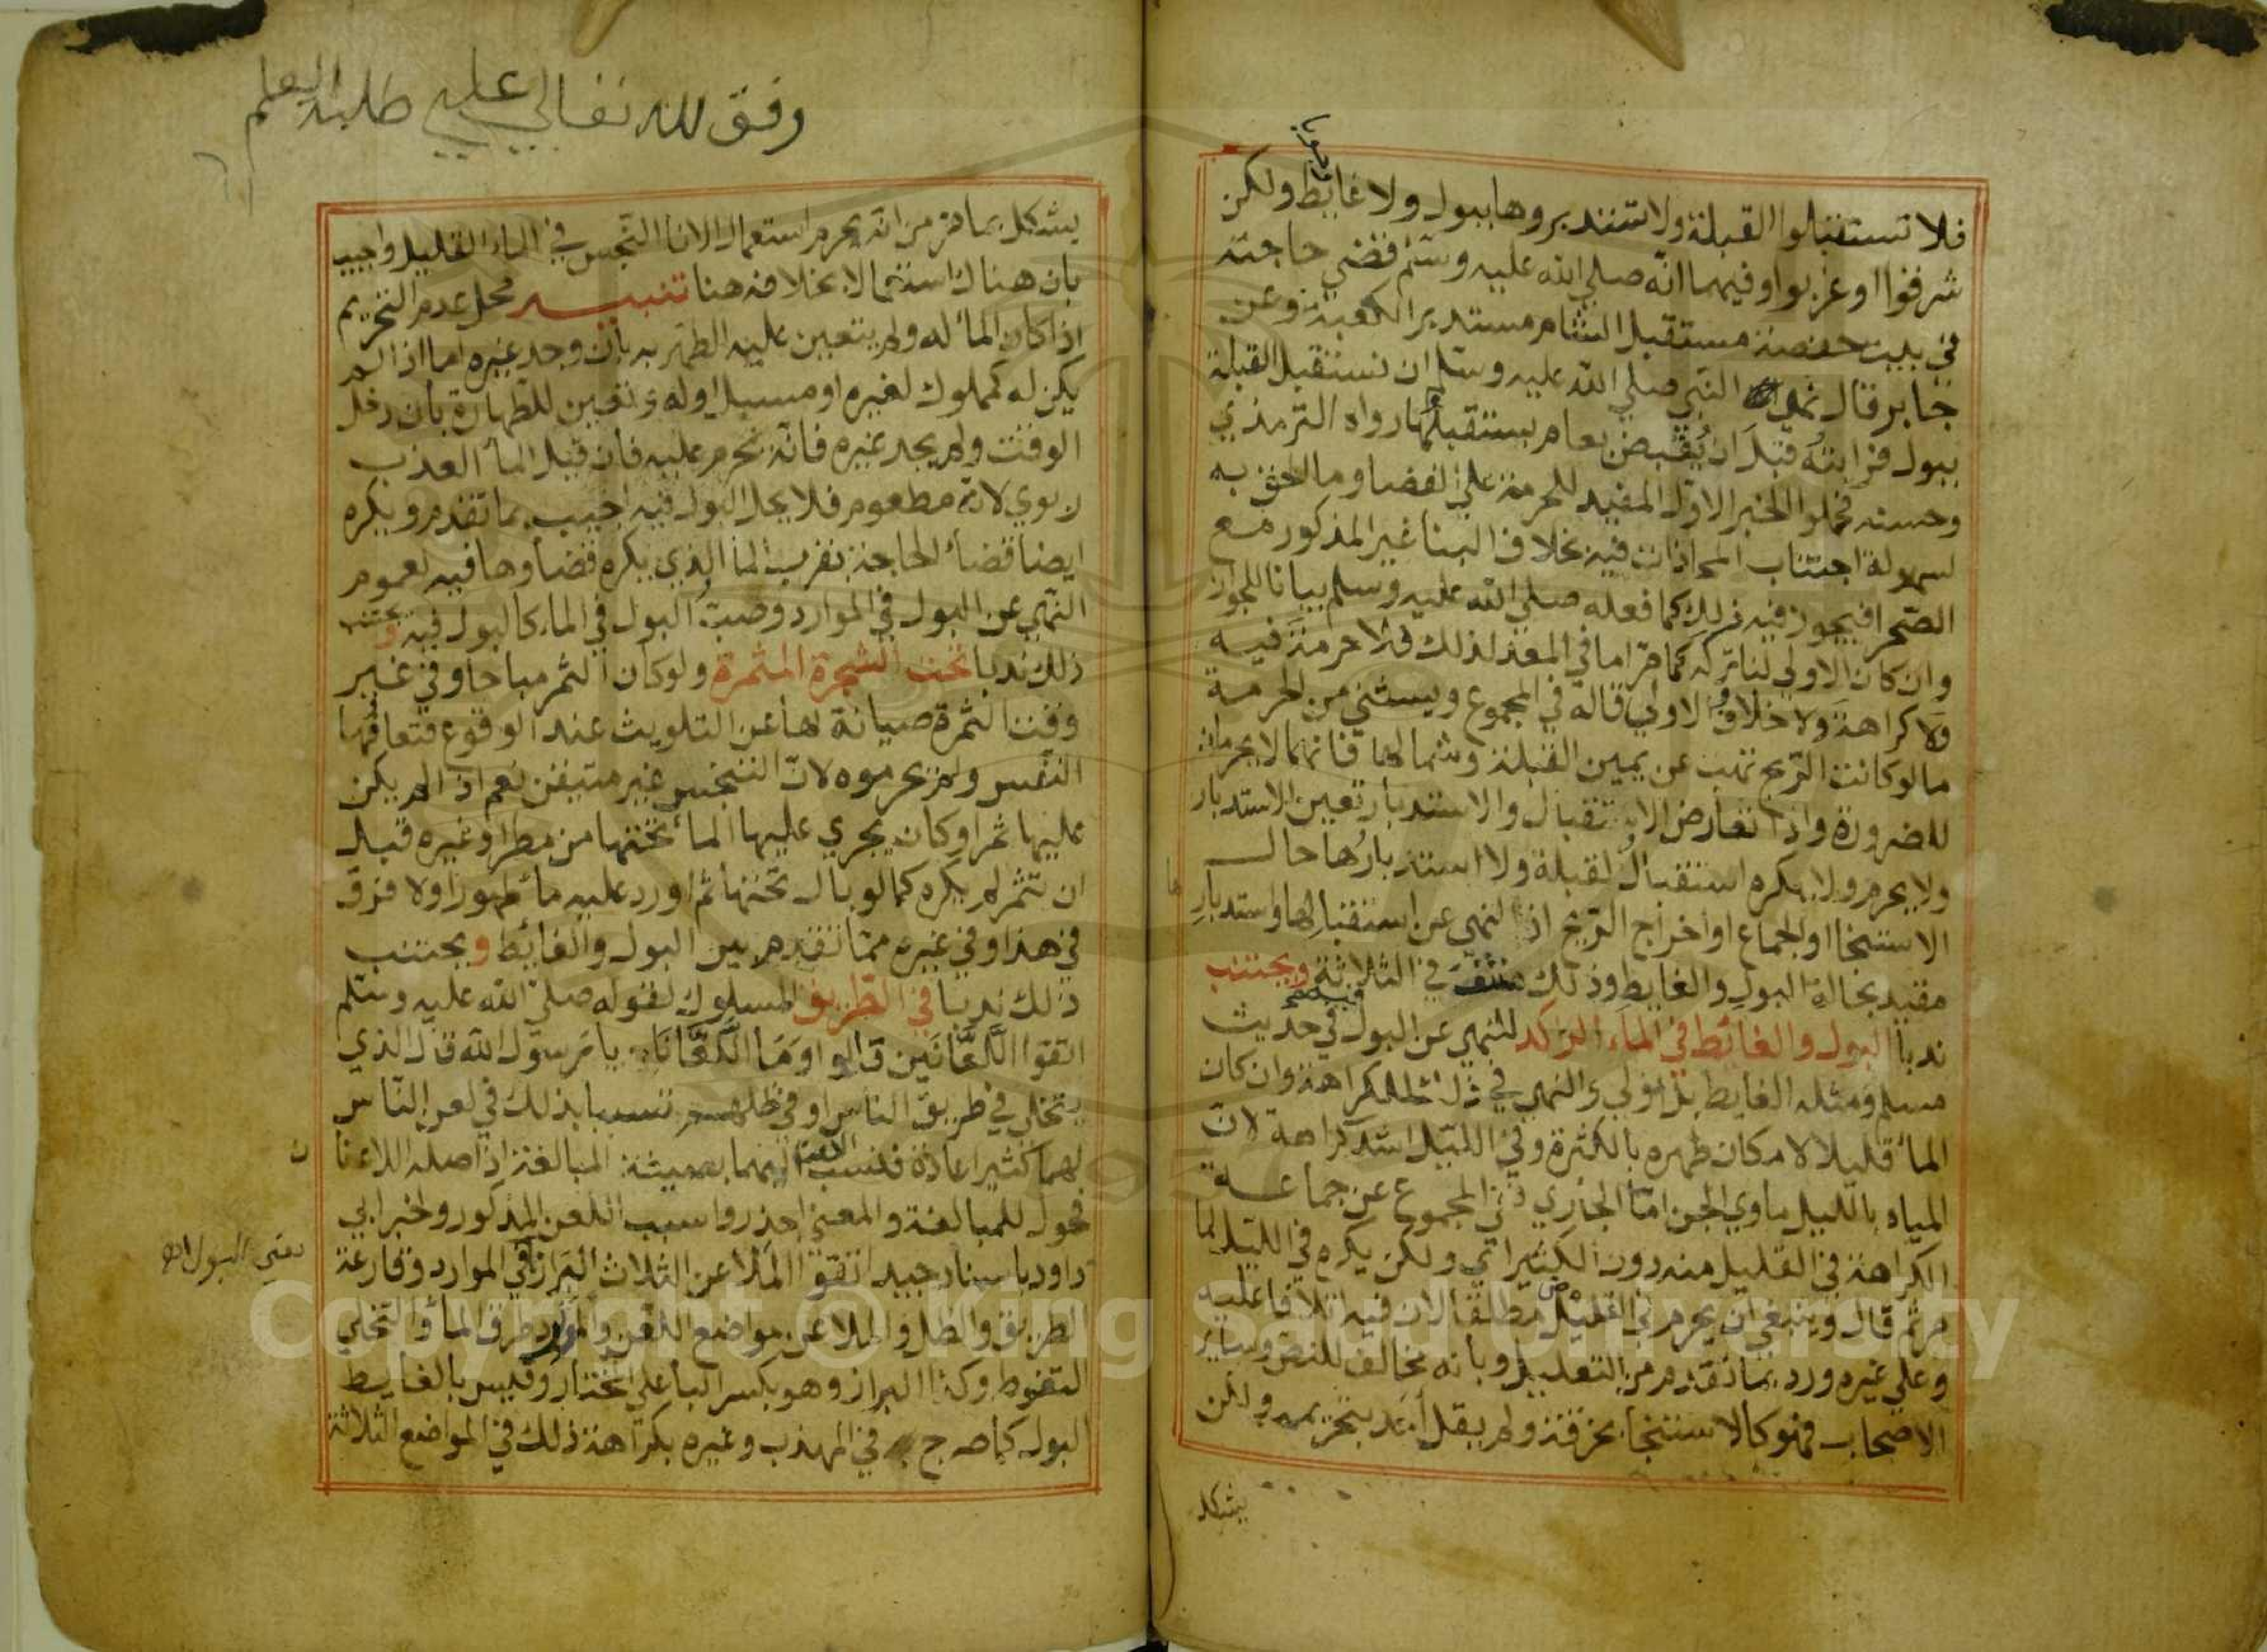 فلا تستقبلوا القبلة ولا تستدبروها ببول ولا غايط ولكن
شرقوا او غربوا وفيهما انه صلى الله عليه وسلم قضى حاجته
في بيت حفصة مستقبل الشام مستدبر الكعبة وعن
جابر قال نهى النبي صلى الله عليه وسلم ان نستقبل القبلة
ببول فرايته قبل ان يقبض بعام يستقبلها رواه الترمذي
وحسنه فحملوا الخبر الاول المفيد للحرمة على الفضا وما الحق به
لسهولة اجتناب المحاذات فيه بخلاف البنا غير المذكور مع
الصحرا فيجوز فيه ذلك كما فعله صلى الله عليه وسلم بيانا للجواز
وان كان الاولى لنا تركه كما مر اما في المعد لذلك فلا حرمة فيه
ولا كراهة ولا خلاف الاولى قاله في المجموع ويستثنى من الحرمة
ما لو كانت الريح تهب عن يمين القبلة وشمالها فانهما لا يحرمان
للضرورة واذا تعارض الاستقبال والاستدبار تعين الاستدبار
ولا يحرم ولا يكره استقبال القبلة ولا استدبارها حال
الاستنجا او الجماع او اخراج الريح اذ النهي عن استقبالها واستدبارها
مقيد بحالة البول والغايط وذلك منتف في الثلاثة ويجتنب
ندبا البول والغائط في الماء الراكد للنهي عن البول فيه في حديث
مسلم ومثله الغايط بل اولى والنهي في ذلك للكراهة وان كان
الماء قليلا لامكان طهره بالكثرة وفي الليل اشد كراهة لان
المياه بالليل ماوي الجن اما الجاري ففي المجموع عن جماعة
الكراهة في القليل منه دون الكثير اي ولكن يكره في الليل لما
مر ثم قال وينبغي ان يحرم في القليل مطلقا لان فيه اتلافا عليه
وعلى غيره ورد بما تقدم من التعليل وبانه مخالف للنص وساير
الاصحاب فهو كالاستنجا بخرقة ولم يقل احد بتحريمه ولكن
يشكل
وفق لله تعالى على طلبة العلم
يشكل بما مر من انه يحرم استعمال الانا النجس في الماء القليل واجيب
بان هناك استعمالا بخلافه هنا تنبيه محل عدم التحريم
اذا كان الماء له ولم يتعين عليه الطهر به بان وجد غيره اما اذا لم
يكن له كمملوك لغيره او مسبل او له وتعين للطهارة بان دخل
الوقت ولم يجد غيره فانه يحرم عليه فان قيل الماء العذب
ربوي لانه مطعوم فلا يحل البول فيه اجيب بما تقدم ويكره
ايضا قضاء الحاجة بقرب الماء الذي يكره قضاوها فيه لعموم
النهي عن البول في الموارد وصب البول في الماء كالبول فيه ويجتنب
ذلك ندبا تحت الشجرة المثمرة ولو كان الثمر مباحا وفي غير
وقت الثمرة صيانة لها عن التلويث عند الوقوع فتعافها
النفس ولم يحرموه لان التنجس غير متيقن نعم اذا لم يكن
عليها ثمر وكان يجري عليها الماء تحتها من مطر او غيره قبل
ان تثمر لم يكره كما لو بال تحتها ثم اورد عليه ماء طهورا ولا فرق
في هذا وفي غيره مما تقدم بين البول والغايط ويجتنب
ذلك ندبا في الطريق المسلوك لقوله صلى الله عليه وسلم
اتقوا اللعانين قالوا وما اللعانان يا رسول الله قال الذي
يتخلى في طريق الناس او في ظلهم تسببا بذلك في لعن الناس
لهما كثيرا عادة فنسب اللعن اليهما بصيغة المبالغة اذ اصله اللاعنان
فحول للمبالغة والمعنى احذروا سبب اللعن المذكور وخبر ابي
داود باسناد جيد اتقوا الملاعن الثلاث البراز في الموارد وقارعة
الطريق والظل والملاعن مواضع اللعن والموارد طرق الماء والتخلي
التغوط وكذا البراز وهو بكسر الباء على المختار وقيس بالغايط
البول كما صرح في المهذب وغيره بكراهة ذلك في المواضع الثلاثة
Copyright © King Saud University
1957